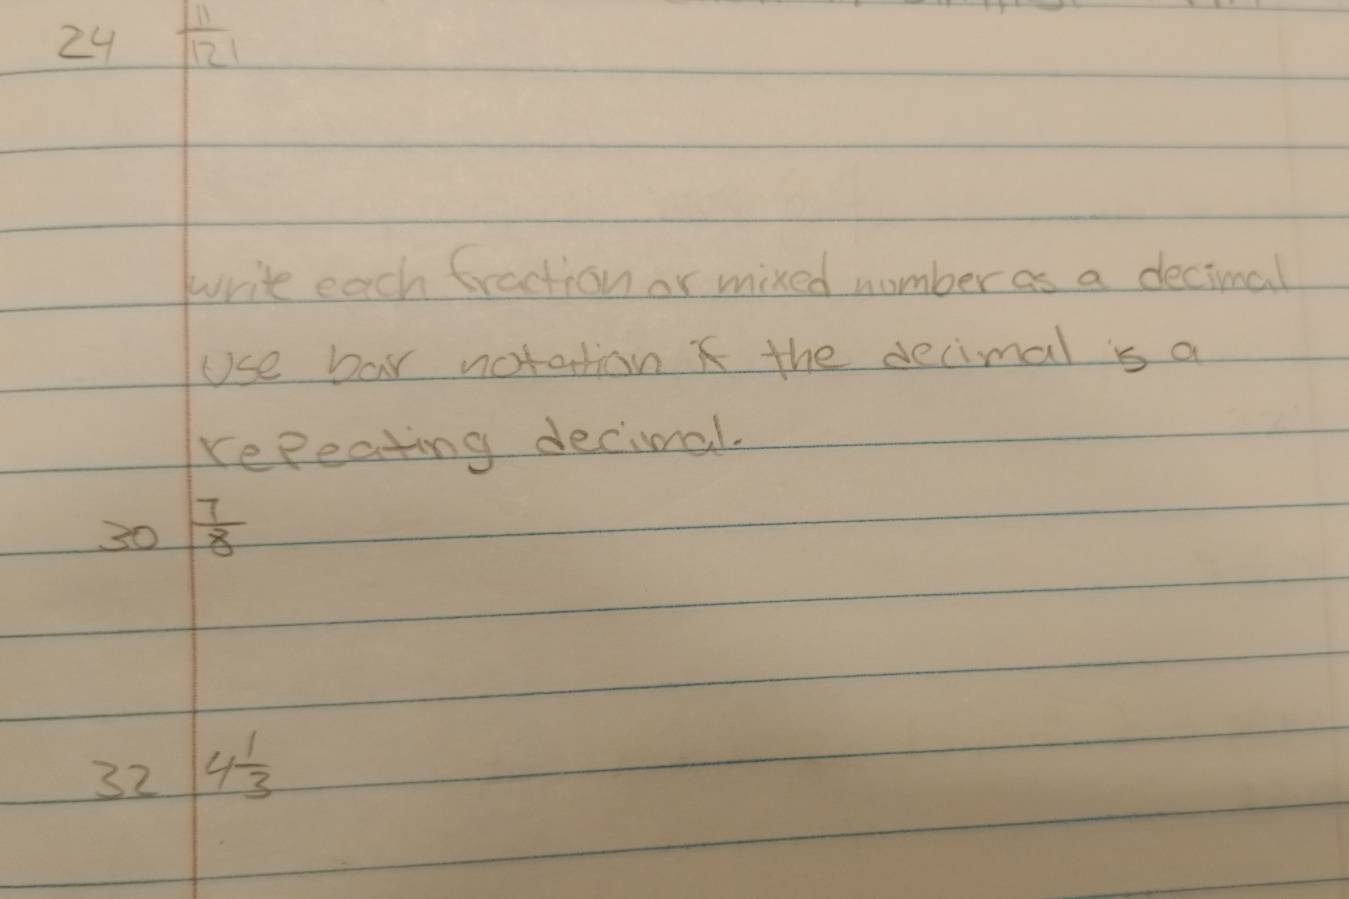 24 11/121
write each fraction or mixed number as a decimal
use bar notation if the decimal is a
repeating decimal.
30 7/8
32 4 1/3